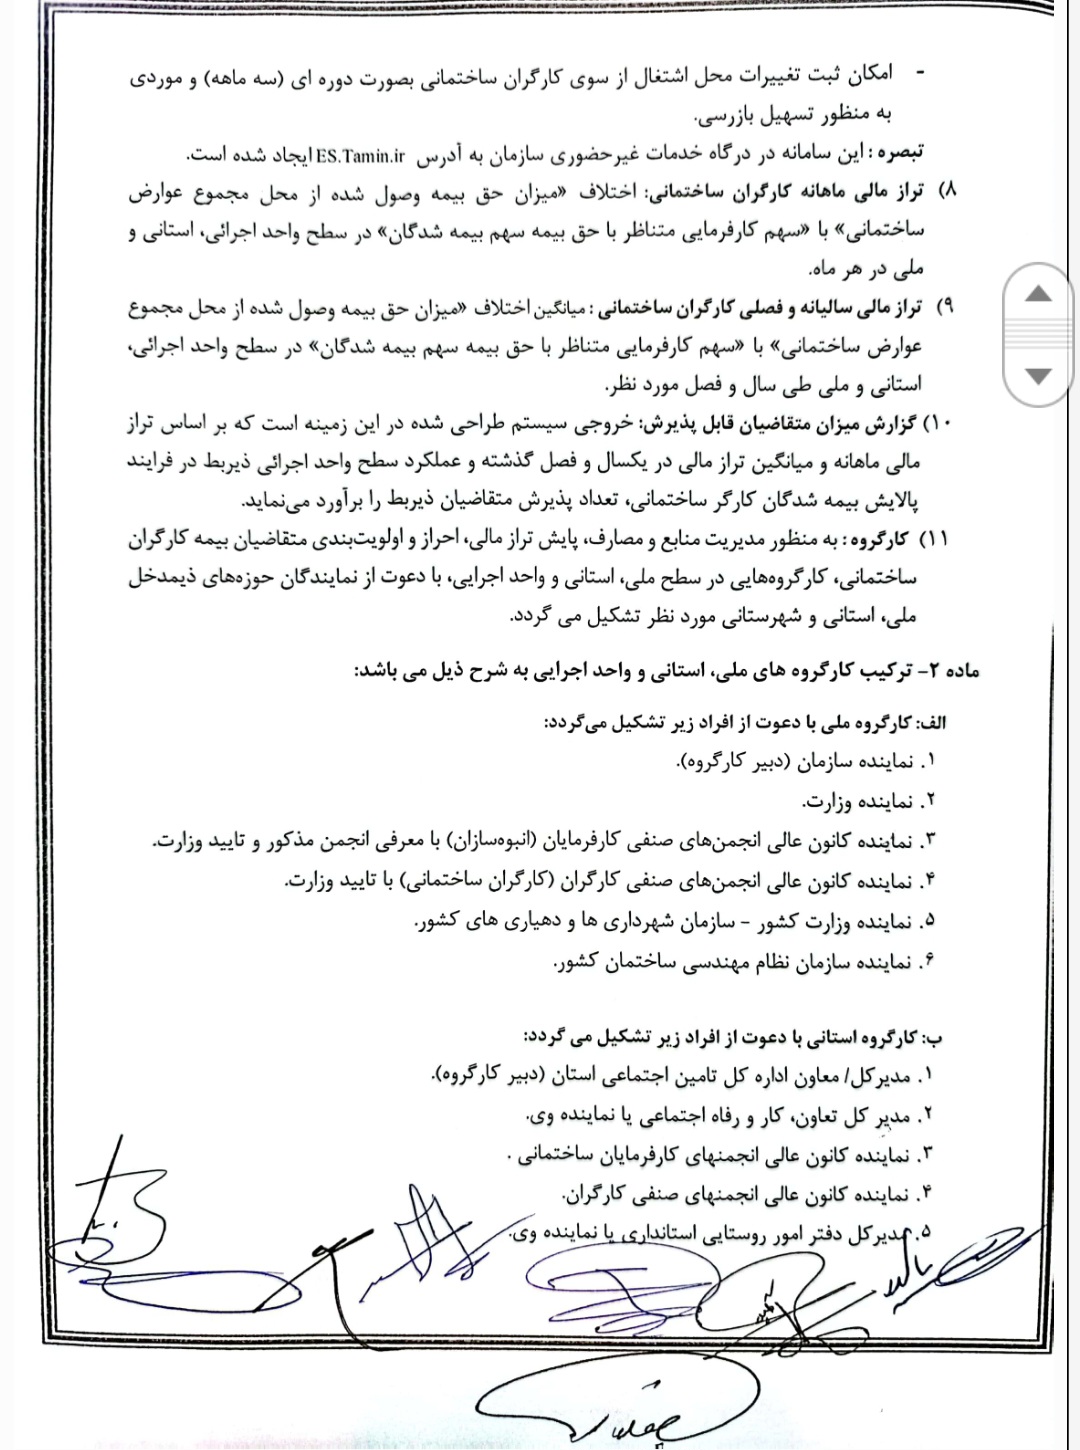 - امکان ثبت تغییرات محل اشتغال از سوی کارگران ساختمانی بصورت دوره ای (سه ماهه) و موردی
به منظور تسهیل بازرسی.
تبصره: این سامانه در درگاه خدمات غیرحضوری سازمان به آدرس ES.Tamin.ir ایجاد شده است.
۸) تراز مالی ماهانه کارگران ساختمانی: اختلاف «میزان حق بیمه وصول شده از محل مجموع عوارض
ساختمانی» با «سهم کارفرمایی متناظر با حق بیمه سهم بیمه شدگان» در سطح واحد اجرائی، استانی و
ملی در هر ماه.
۹) تراز مالی سالیانه و فصلی کارگران ساختمانی: میانگین اختلاف «میزان حق بیمه وصول شده از محل مجموع
عوارض ساختمانی» با «سهم کارفرمایی متناظر با حق بیمه سهم بیمه شدگان» در سطح واحد اجرائی،
استانی و ملی طی سال و فصل مورد نظر.
۱۰) گزارش میزان متقاضیان قابل پذیرش: خروجی سیستم طراحی شده در این زمینه است که بر اساس تراز
مالی ماهانه و میانگین تراز مالی در یکسال و فصل گذشته و عملکرد سطح واحد اجرائی ذیربط در فرایند
پالایش بیمه شدگان کارگر ساختمانی، تعداد پذیرش متقاضیان ذیربط را برآورد می‌نماید.
۱۱) کارگروه: به منظور مدیریت منابع و مصارف، پایش تراز مالی، احراز و اولویت‌بندی متقاضیان بیمه کارگران
ساختمانی، کارگروه‌هایی در سطح ملی، استانی و واحد اجرایی، با دعوت از نمایندگان حوزه‌های ذیمدخل
ملی، استانی و شهرستانی مورد نظر تشکیل می گردد.
ماده ۲- ترکیب کارگروه های ملی، استانی و واحد اجرایی به شرح ذیل می باشد:
الف: کارگروه ملی با دعوت از افراد زیر تشکیل می‌گردد:
۱. نماینده سازمان (دبیر کارگروه).
۲. نماینده وزارت.
۳. نماینده کانون عالی انجمن‌های صنفی کارفرمایان (انبوه‌سازان) با معرفی انجمن مذکور و تایید وزارت.
۴. نماینده کانون عالی انجمن‌های صنفی کارگران (کارگران ساختمانی) با تایید وزارت.
۵. نماینده وزارت کشور - سازمان شهرداری ها و دهیاری های کشور.
۶. نماینده سازمان نظام مهندسی ساختمان کشور.
ب: کارگروه استانی با دعوت از افراد زیر تشکیل می گردد:
۱. مدیرکل/ معاون اداره کل تامین اجتماعی استان (دبیر کارگروه).
۲. مدیر کل تعاون، کار و رفاه اجتماعی یا نماینده وی.
۳. نماینده کانون عالی انجمنهای کارفرمایان ساختمانی .
۴. نماینده کانون عالی انجمنهای صنفی کارگران.
۵. مدیرکل دفتر امور روستایی استانداری یا نماینده وی.